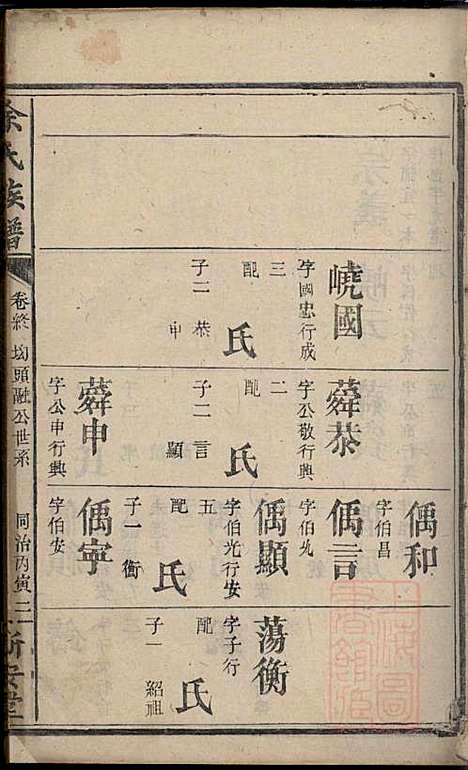 余氏族譜
卷終 坳頭融公世系 同治丙寅二 新安堂
嶢國
字國忠行成
三
配 氏
子二 恭 申
蕣恭
字公敬行興
二
配 氏
子二 言 顯
蕣申
字公申行興
偊和
字伯昌
偊言
字伯允
偊顯
字伯光行安
五
配 氏
子一 衡
偊寧
字伯安
蕩衡
字子行
配 氏
子一 紹祖
上海圖書館藏